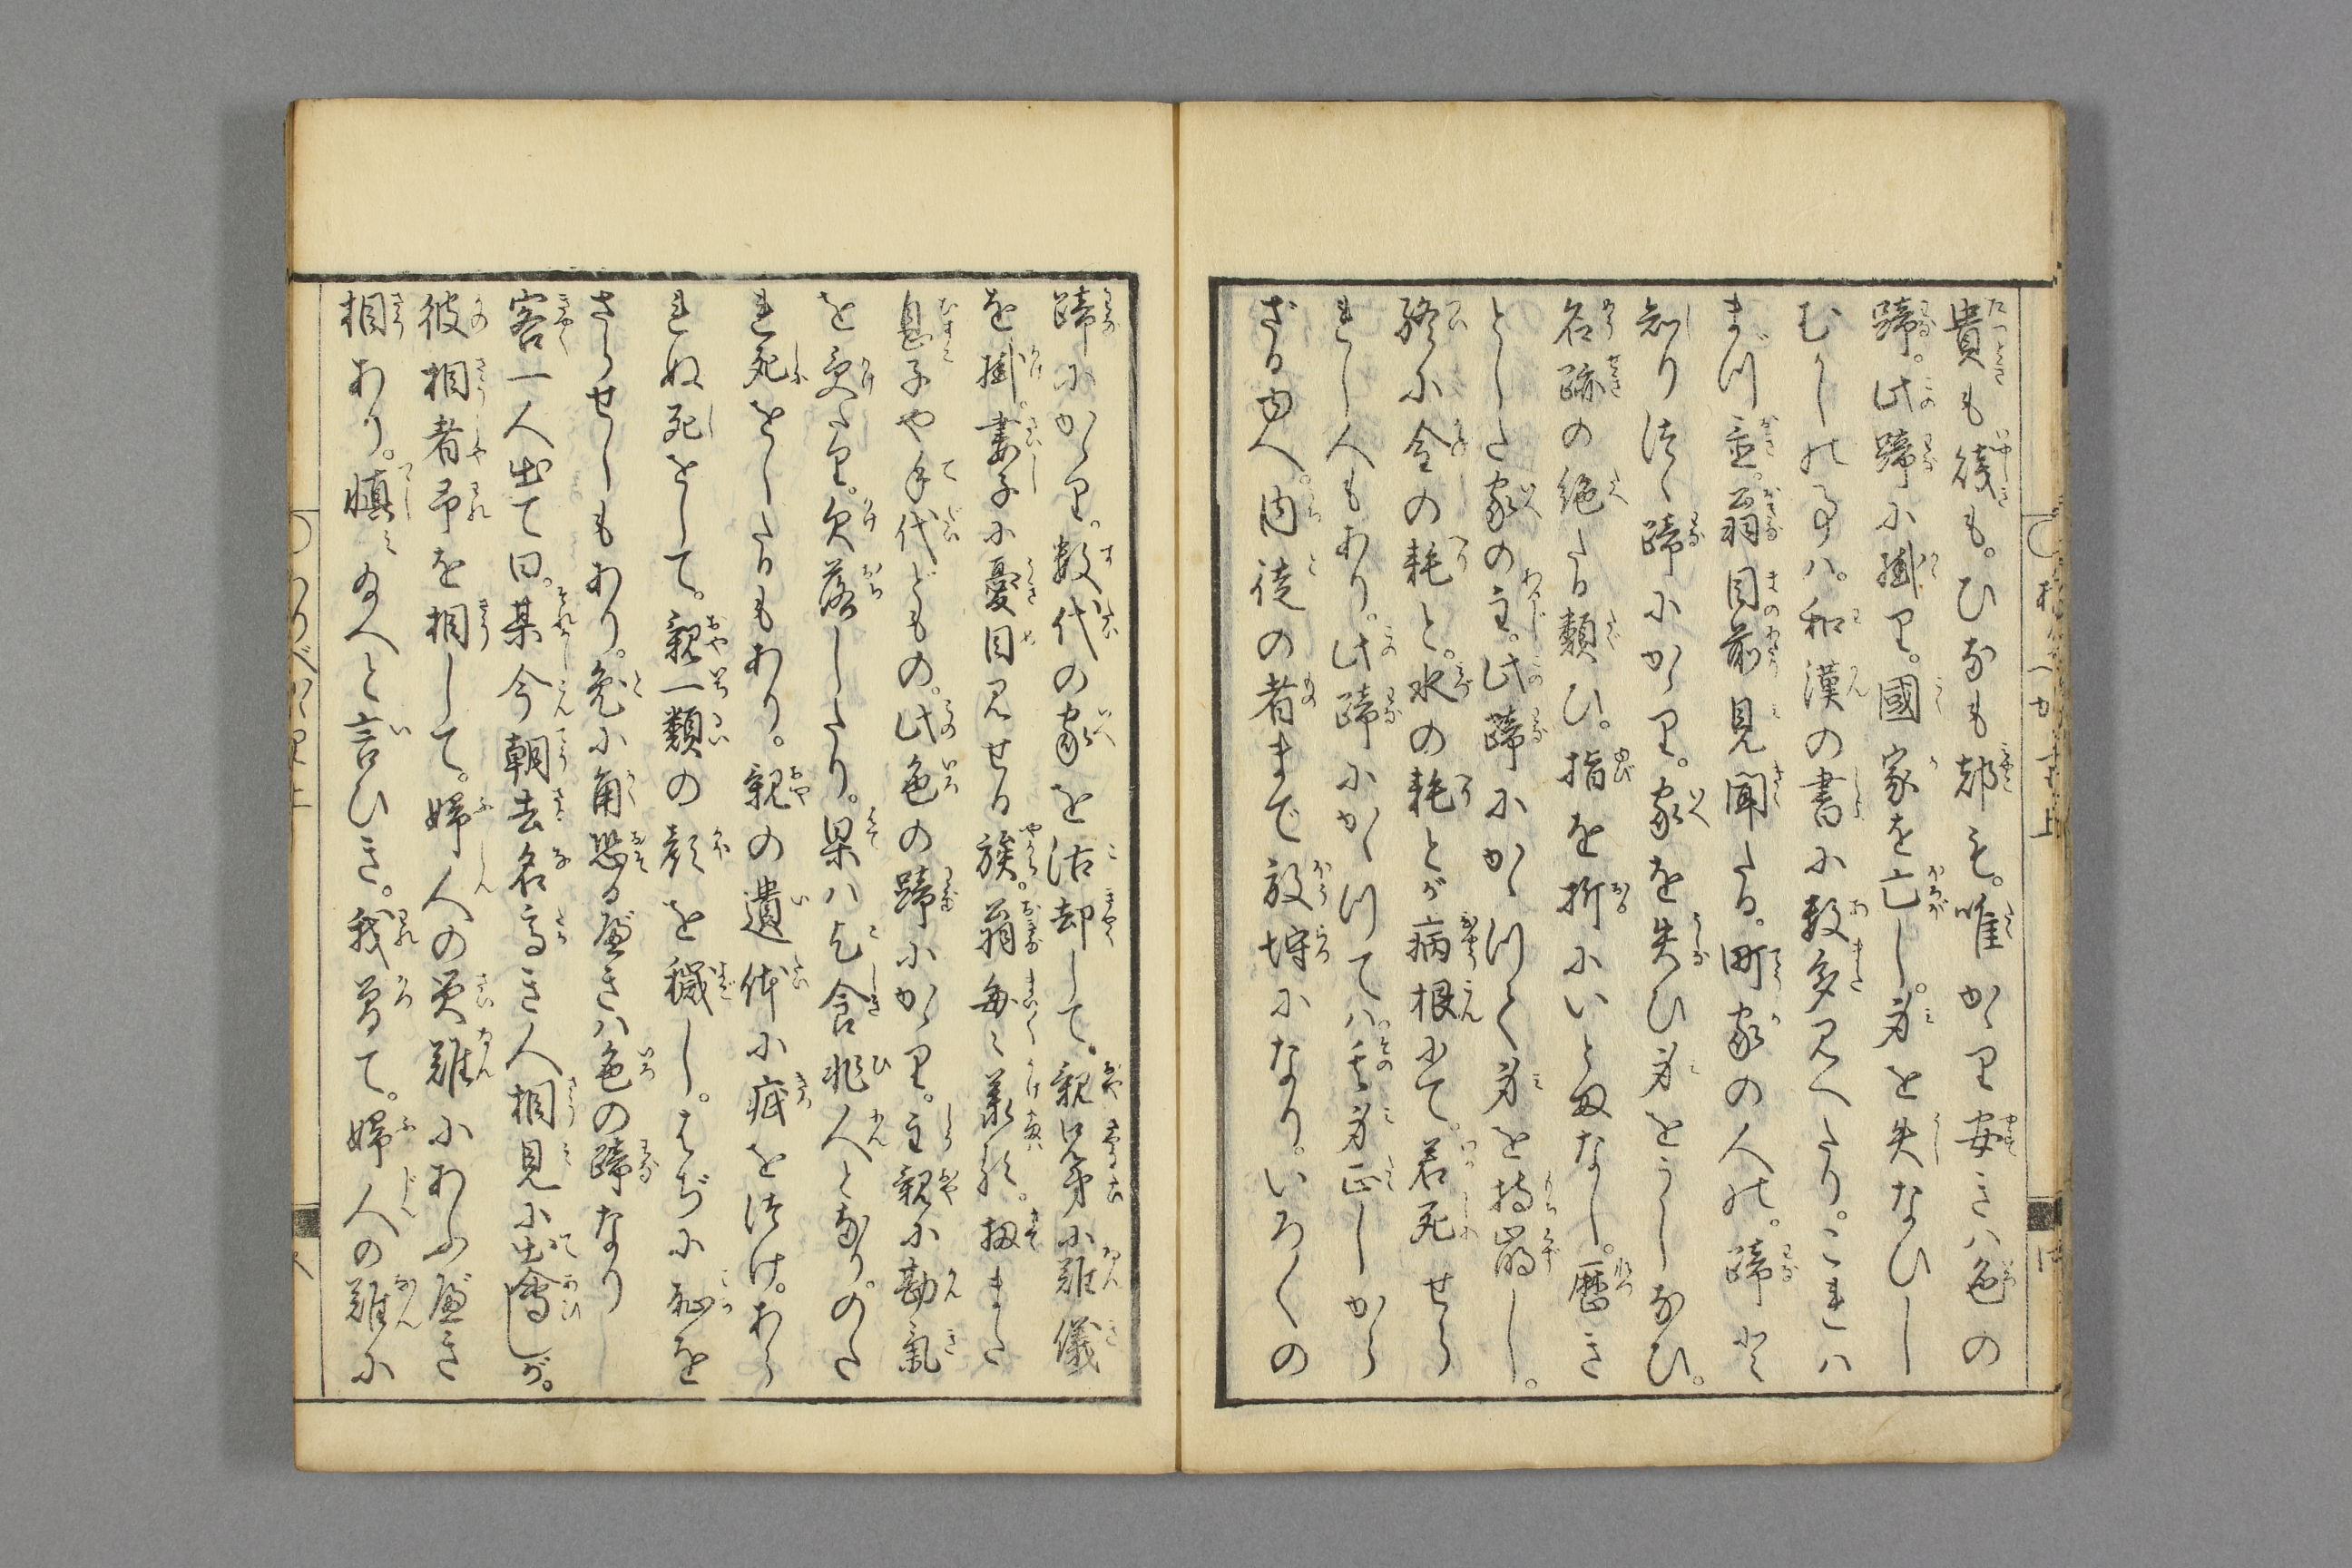 貴も賎も。ひなも都も。唯かゝり安きハ色の
蹄。此蹄に掛り。國家を亡し。身を失なひし
むかしの事ハ。和漢の書に数多見へたり。これハ
まづ置。翁目前見聞たる。町家の人の。蹄と
知りつゝ蹄にかゝり。家を失ひ身をうしなひ。
名跡の絶たる類ひ。指を折にいとまなし。歴き
としたる家の主。此蹄にかゝつて身を持崩し。
終に金の耗と。水の耗とが病根にて。若死せら
れし人もあり。此蹄にかゝつてハ。其身正しから
ざる故へ。内徒の者まで放埒になり。いろ〳〵の
蹄にかゝり。数代の家を沽却して。親兄弟に難儀
を掛。妻子に憂目見せる族。翁毎〻承る。扨また
息子や手代どもの。此色の蹄にかゝり。主親に勘氣
を受たり。欠落したり。果ハ乞食非人となり。のた
れ死をしたるもあり。親の遺体に疵をつけ。あら
れぬ死をして。親一類の顔を穢し。はぢに恥を
さらせしもあり。兎に角恐る べきハ色の蹄なり
客一人出て曰。某今朝去名高き人相見に出會しが。
彼相者予を相して。婦人の災難にあふべき
相あり。慎み給へと言ひき。我曽て。婦人の難に